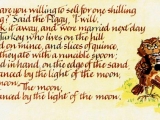 are you willing to sell for one shilling
? Said the Piggy, "I will,"
k it away, and were married next day
Turkey who lives on the hill
ed on mince, and slices of quince,
they ate with a runcible spoon;
d in hand, on the edge of the sand,
anced by the light of the moon,
The moon,
The moon,
anced by the light of the moon.